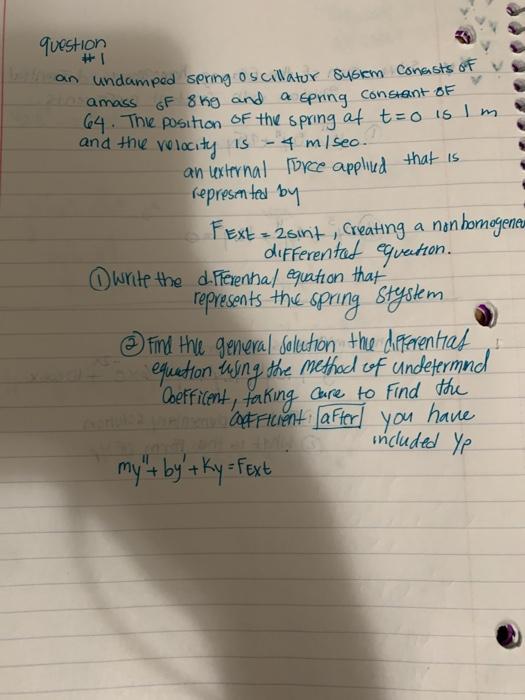 question
#1
an undamped spring oscillator system consists of
a mass of 8kg and a spring constant of
64. The position of the spring at t=0 is 1 m
and the velocity is -4 m/sec.
an external Force applied that is
represented by
FExt = 2sint, creating a nonhomogeneo
differential equation.
① Write the differential equation that
represents the spring stystem
② Find the general solution the differential
equation using the method of undetermined
Coefficent, taking care to Find the
coefficient after you have
included yp
my"+by'+Ky=FExt